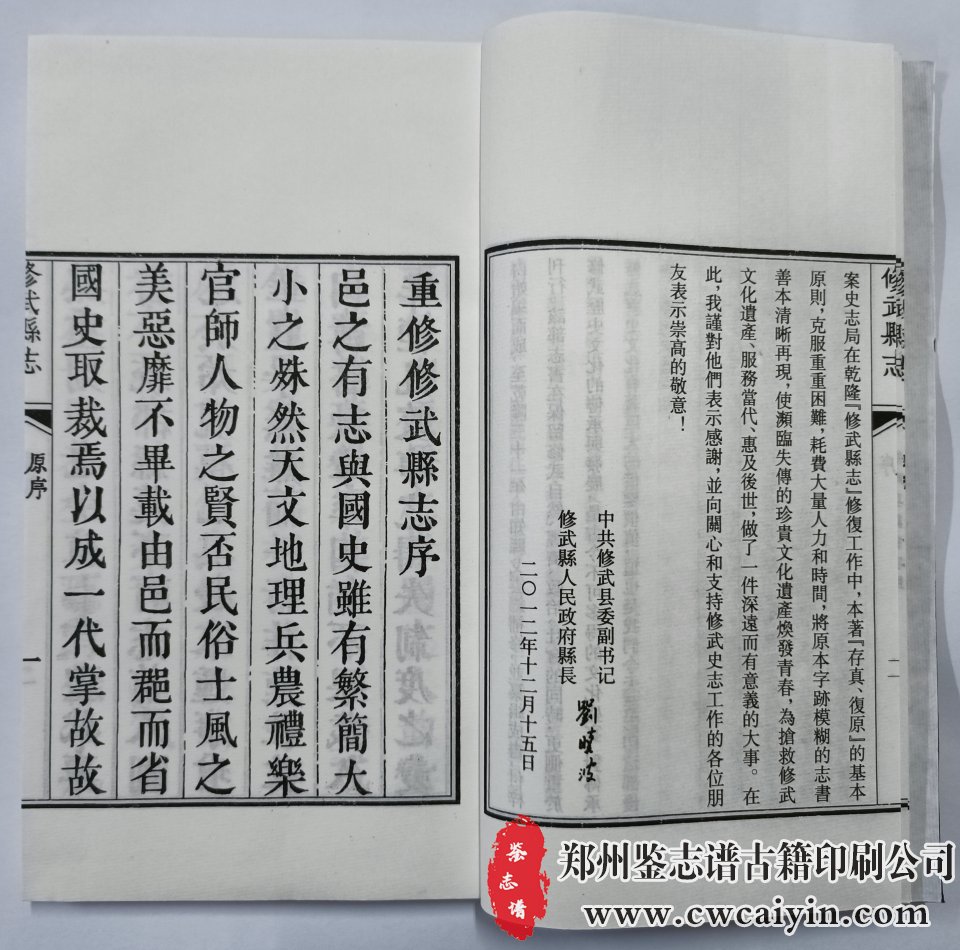 修武縣志
案史志局在乾隆『修武縣志』修復工作中，本著『存真、復原』的基本
原則，克服重重困難，耗費大量人力和時間，將原本字跡模糊的志書
善本清晰再現，使瀕臨失傳的珍貴文化遺產煥發青春，為搶救修武
文化遺產、服務當代、惠及後世，做了一件深遠而有意義的大事。在
此，我謹對他們表示感謝，並向關心和支持修武史志工作的各位朋
友表示崇高的敬意！
中共修武县委副书记
修武縣人民政府縣長
二〇一二年十二月十五日
重修修武縣志序
邑之有志與國史雖有繁簡大
小之殊然天文地理兵農禮樂
官師人物之賢否民俗士風之
美惡靡不畢載由邑而郡而省
國史取裁焉以成一代掌故故
修武縣志
原序
一
鉴志谱
郑州鉴志谱古籍印刷公司
www.cwcaiyin.com